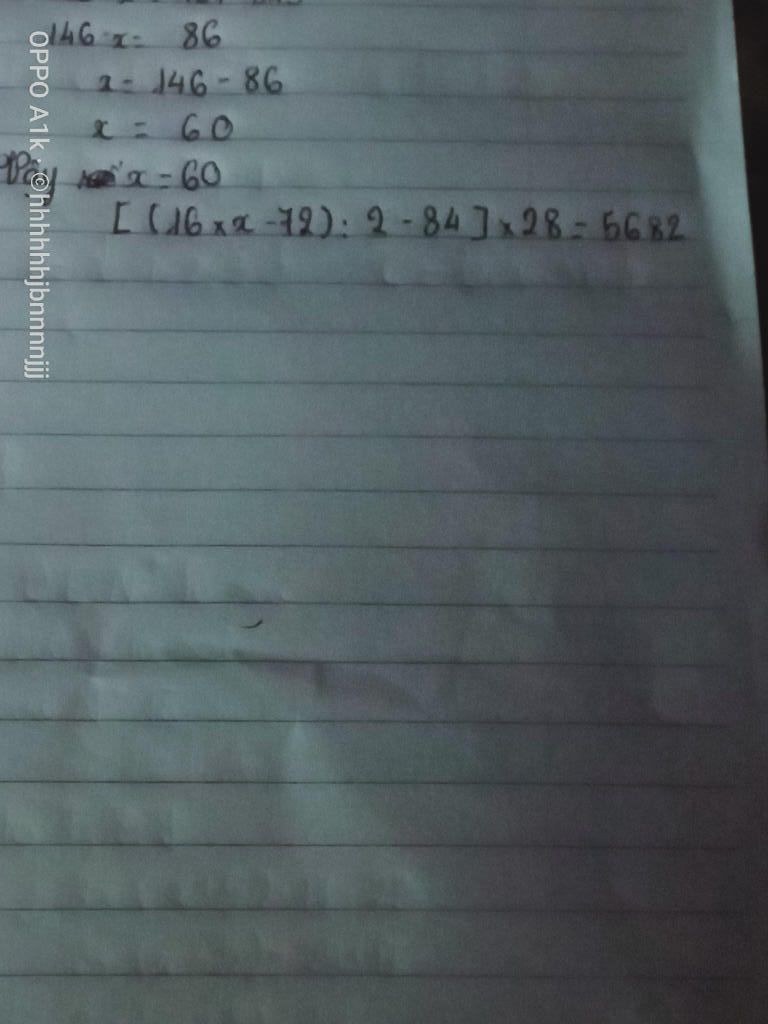 146 - x = 86
x = 146 - 86
x = 60
Vậy x = 60
[ (16 x x - 72) : 2 - 84 ] x 28 = 5682
OPPO A1k · ©hhhhhhjbnnnnnjjj